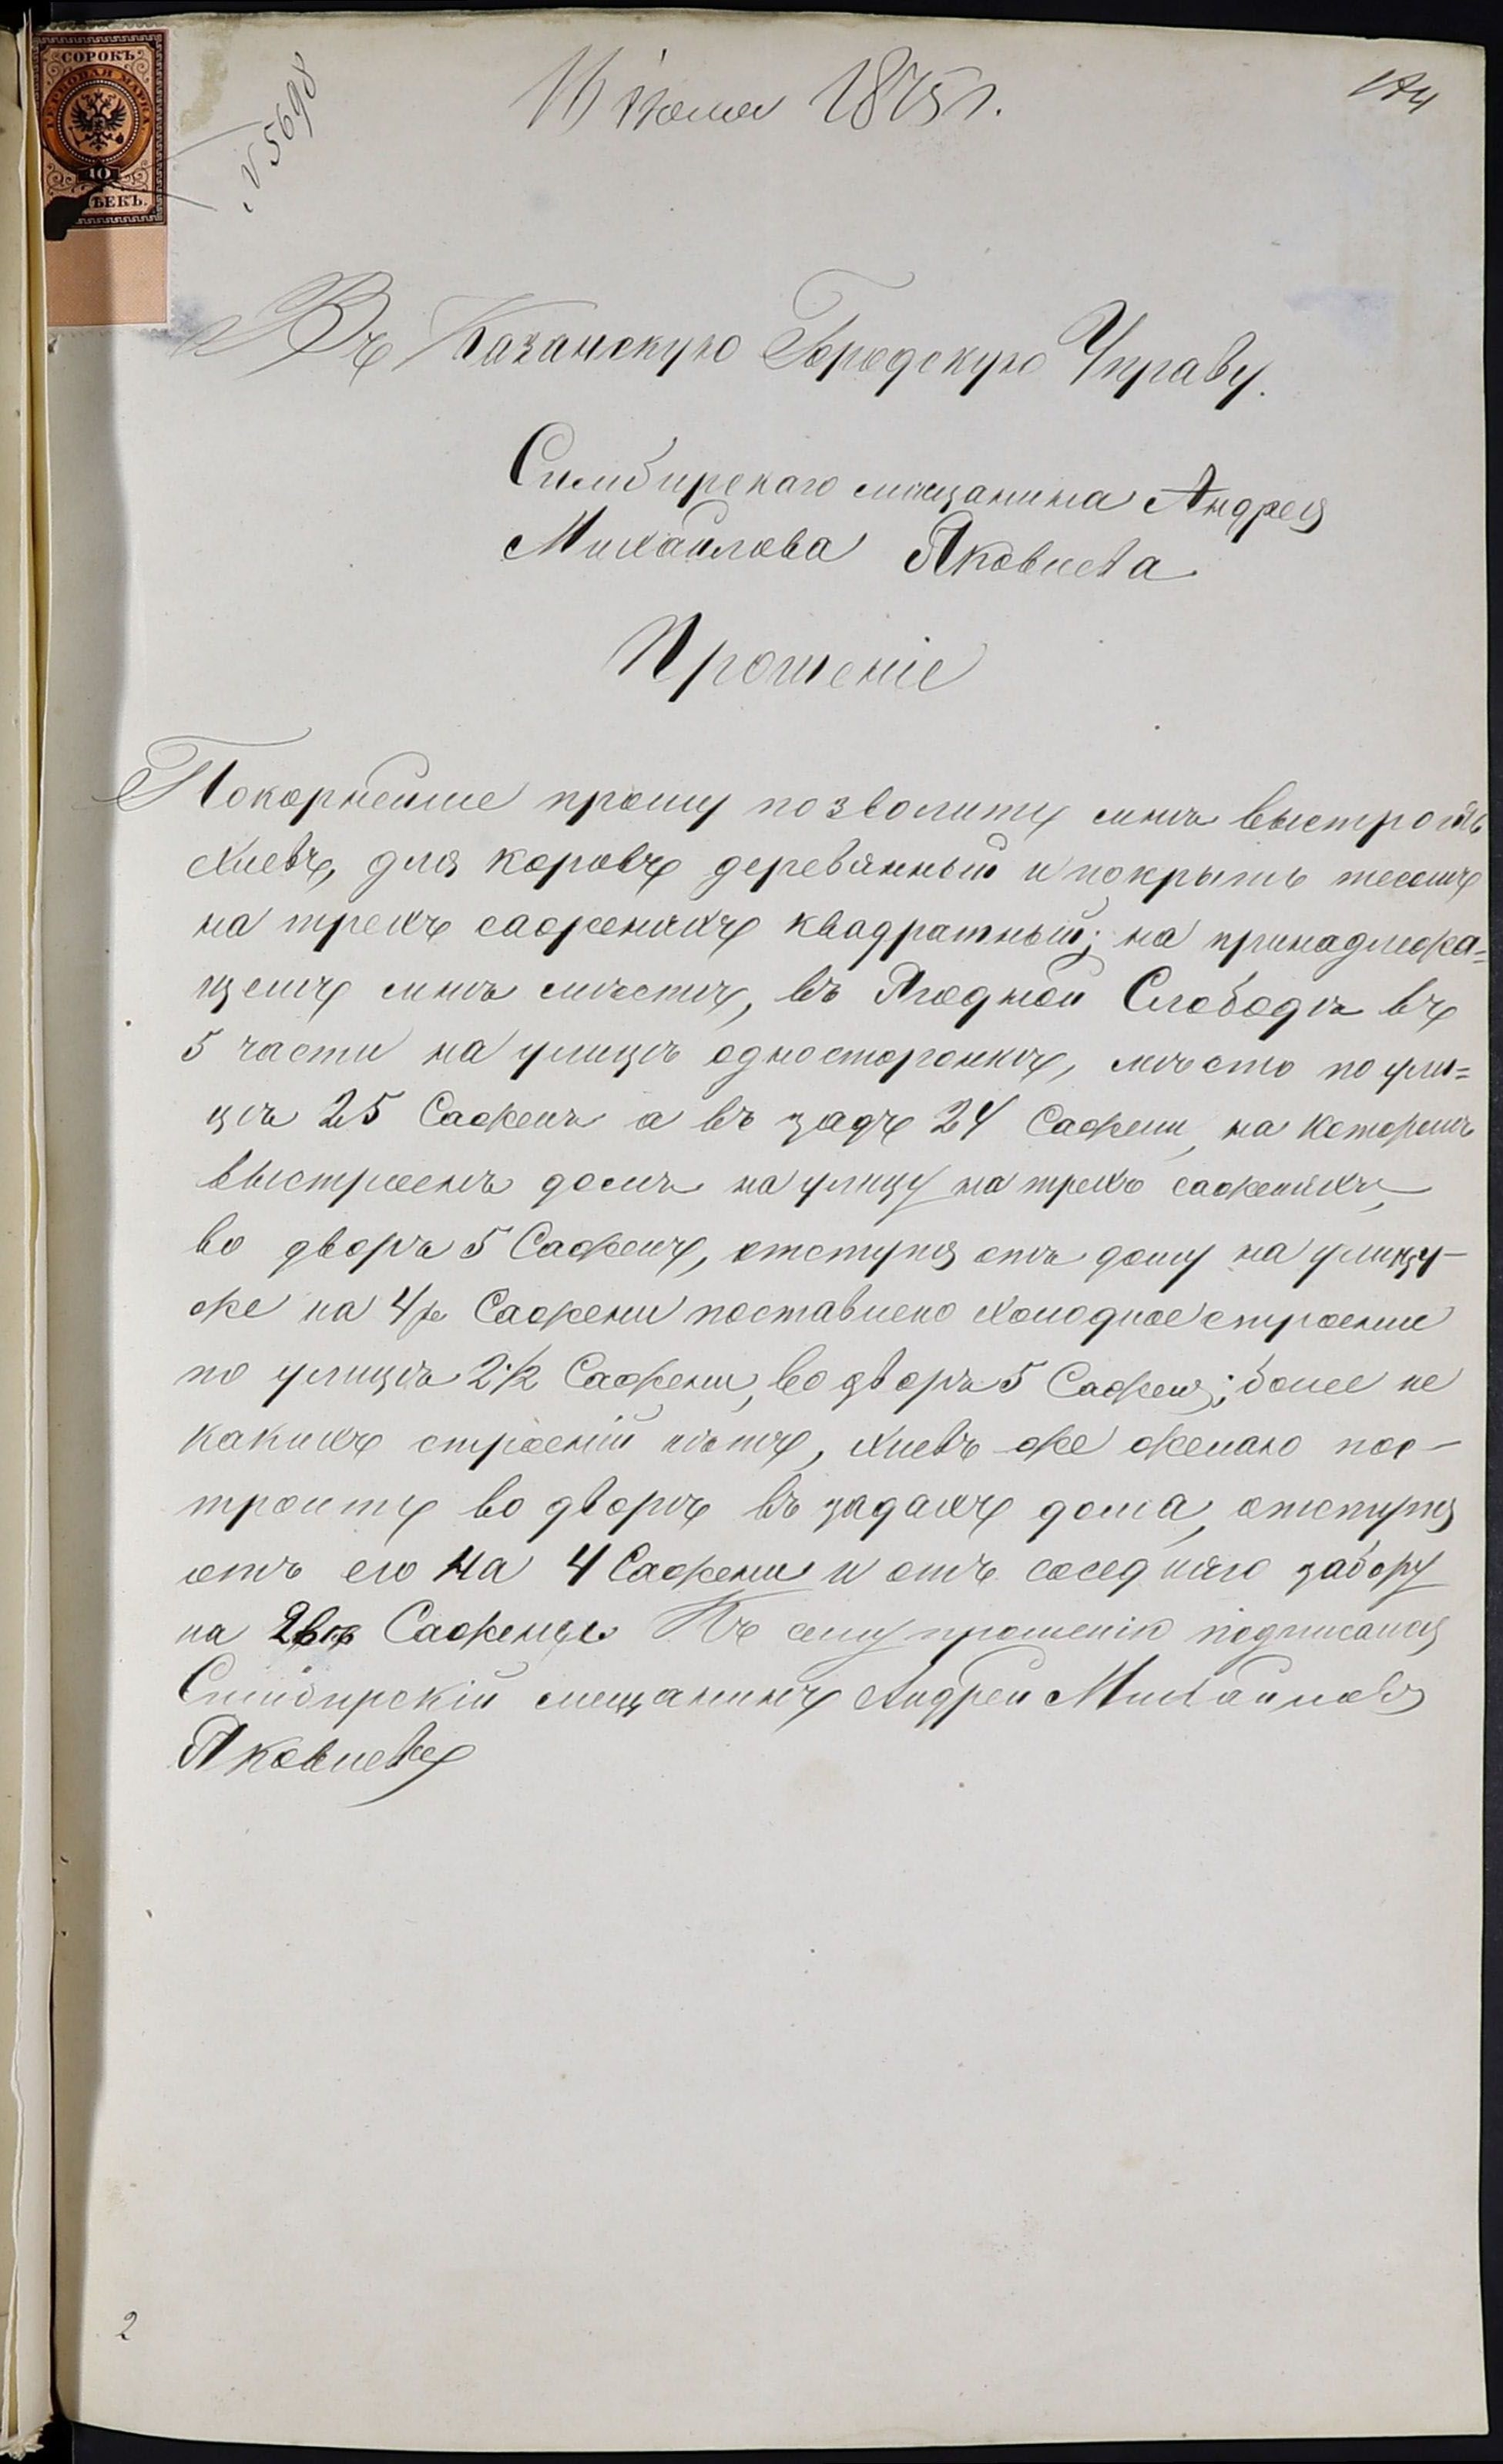 СОРОКЪ
ГЕРБОВАЯ МАРКА
40
ѢЕКЪ.
№ 5698
1875 г.
Въ Казанскую Городскую Управу.
Симбирскаго мѣщанина Андрея
Михайлова Яковлева
Прошеніе
Покорнейше прошу позволить мнѣ выстроить
хлевъ, для коровъ деревянный и покрыть тесомъ
на трехъ саженяхъ квадратный; на принадлежа=
щемъ мнѣ местѣ, въ Ягодной Слободѣ въ
5 части на улицѣ односторонкѣ, мѣсто по ули=
цѣ 25 Сажень а въ задъ 24 Сажени, на которомъ
выстроенъ домъ на улицу на трехъ саженяхъ,
во дворъ 5 Сажень, отступя отъ дому на улицу-
же на 4 Сажени поставлено холодное строение
по улицѣ 2½ Сажени, во дворъ 5 Сажень; более не
какихъ строеній нѣтъ, хлевъ же желаю пос-
троить во дворѣ въ задахъ дома, отступя
отъ его на 4 Сажени и отъ соседняго забору
на Къ сему прошенію подписался
Симбирскій мещанинъ Андрей Михайловъ
Яковлевъ
2